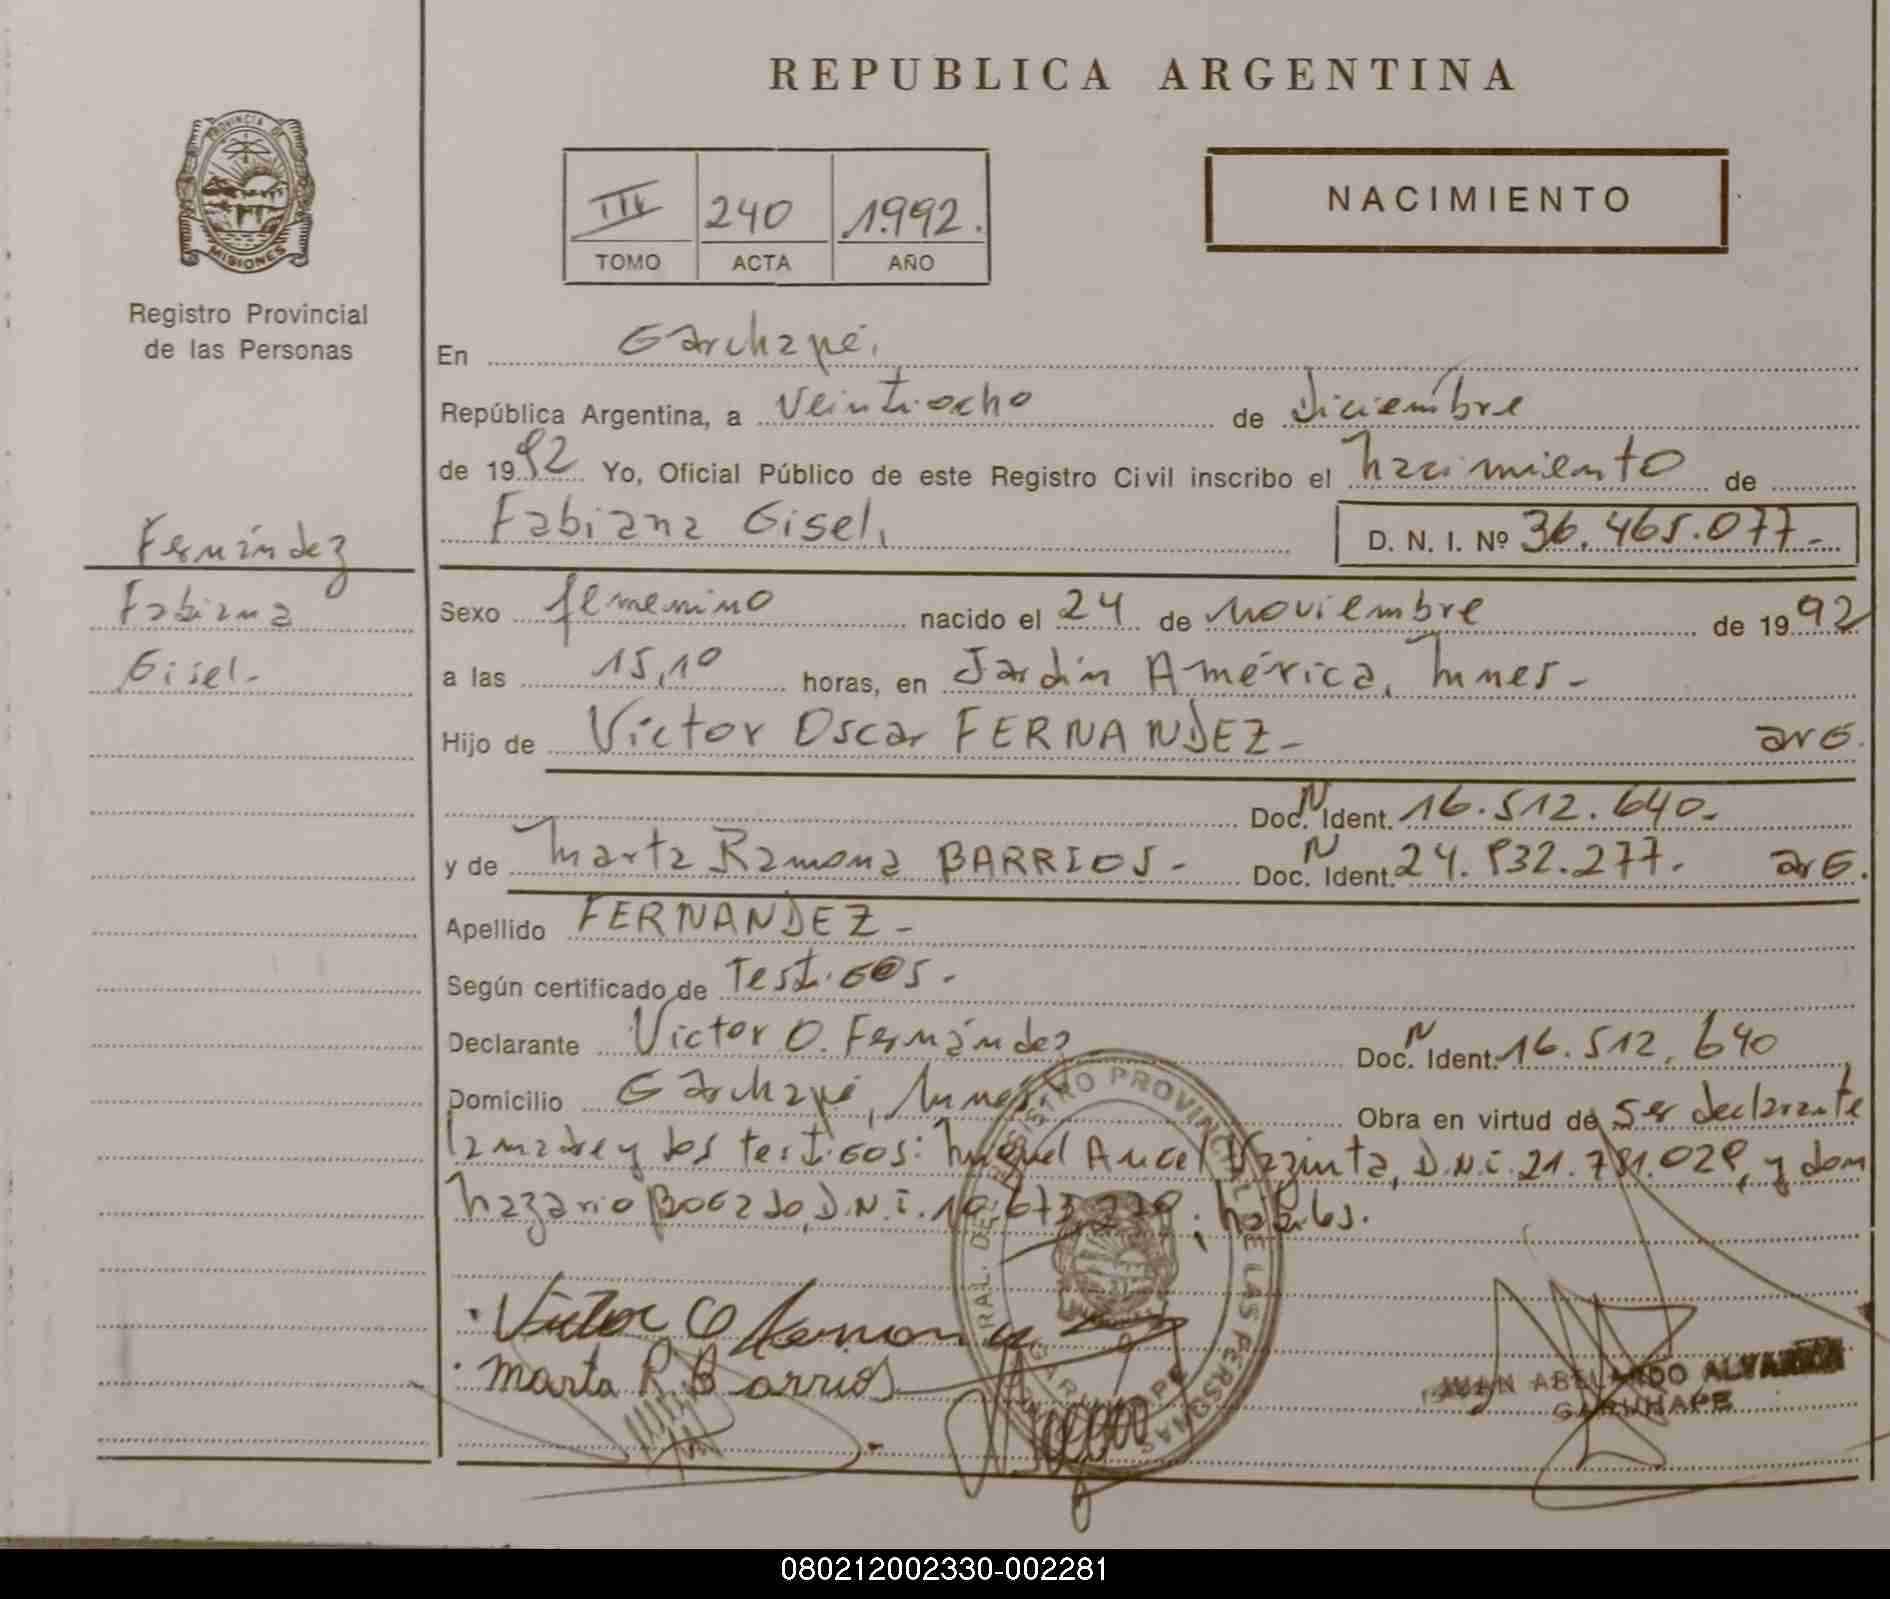 REPUBLICA ARGENTINA
PROVINCIA DE
MISIONES
Registro Provincial
de las Personas
III 240 1992.
TOMO ACTA AÑO
NACIMIENTO
En Garuhapé.
República Argentina, a veintiocho de diciembre
de 1992 Yo, Oficial Público de este Registro Civil inscribo el nacimiento de
Fabiana Gisel. D. N. I. Nº 36.465.077-
Fernández
Fabiana
Gisel.-
Sexo femenino nacido el 24 de noviembre de 1992
a las 15,10 horas, en Jardín América, Mnes-
Hijo de Victor Oscar FERNANDEZ- arg.
Doc. N Ident. 16.512.640-
y de Marta Ramona BARRIOS- Doc. N Ident. 24.932.277- arg.
Apellido FERNANDEZ-
Según certificado de Testigos-
Declarante Victor O. Fernández Doc. N Ident. 16.512.640
Domicilio Garuhapé, Mnes. Obra en virtud de ser declarante
la madre y los testigos: Miguel Angel D.N.i. 21.781.029, y don
Nazario Bogado, D.N.i. habiles.
Victor O Fernandez
Marta R. Barrios
REGISTRO PROVINCIAL DE LAS PERSONAS
GARUHAPE
JUAN ABELARDO ALVAREZ
GARUHAPE
080212002330-002281